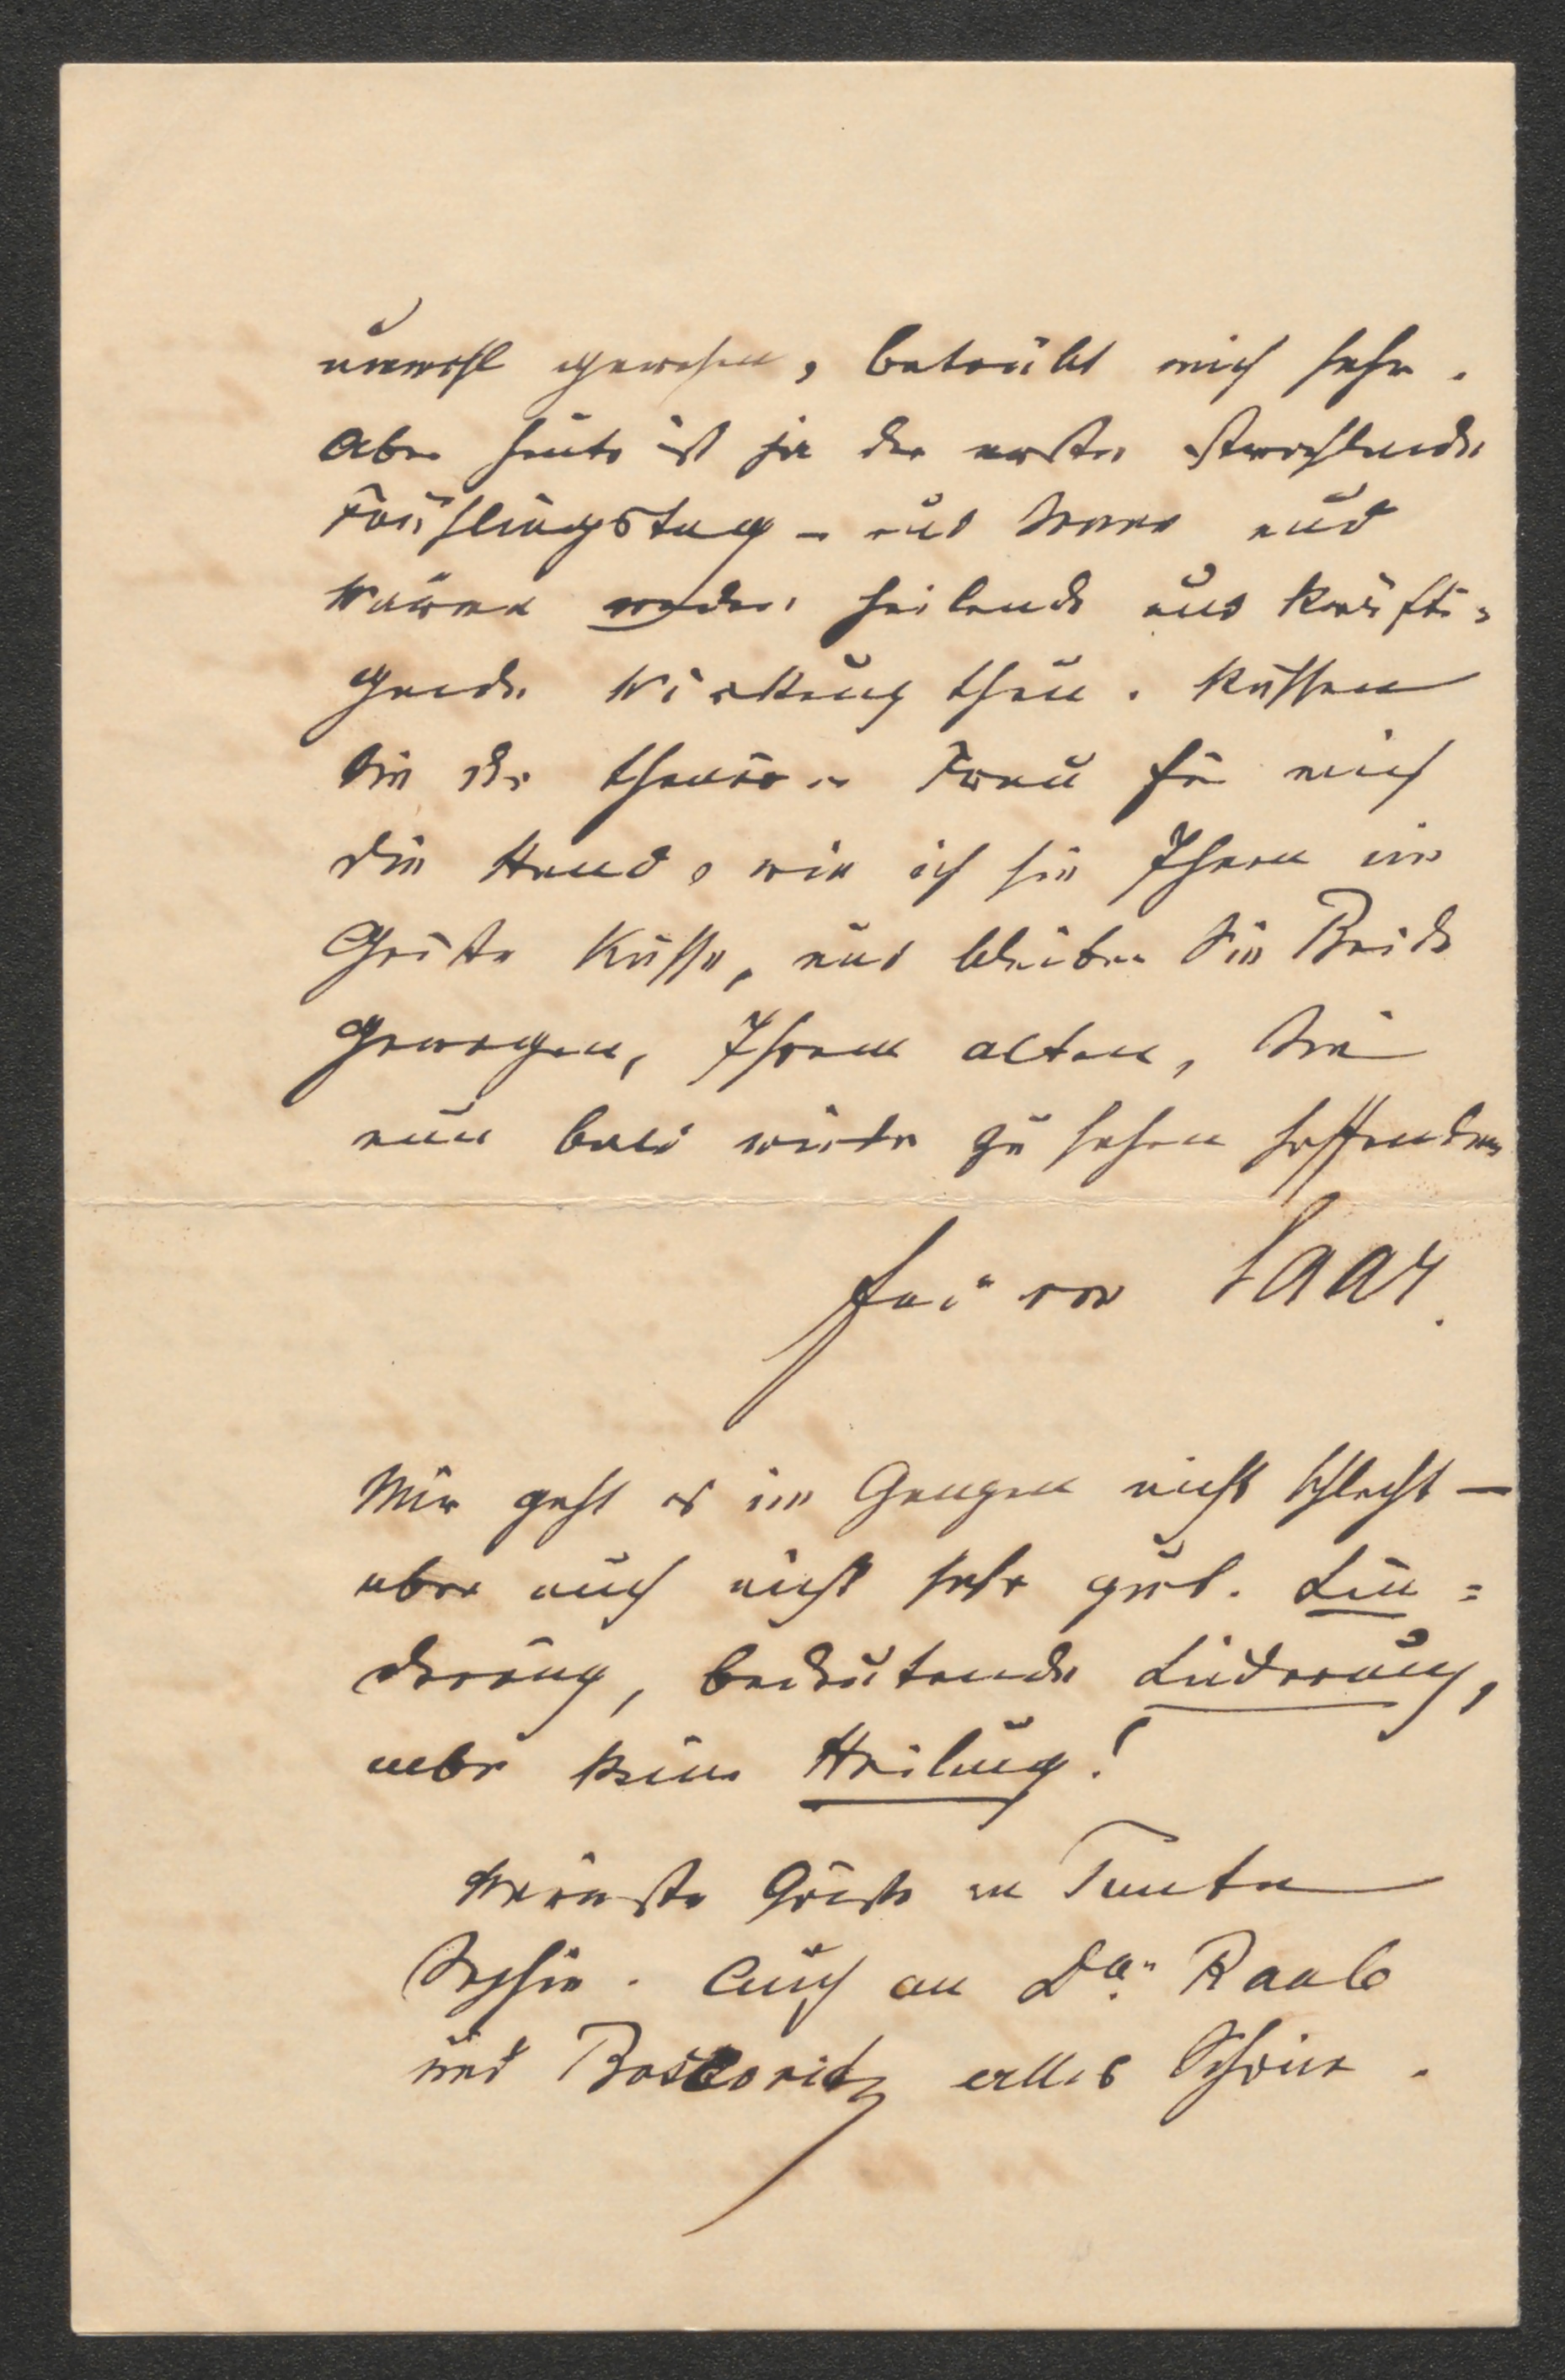 unwohl gewesen, betrübt mich sehr.
Aber heute ist ja der erste strahlende
Frühlingstag – und Sonne und
Wärme werden heilende und kräfti=
gende Wirkung thun. Küssen
Sie der theueren Frau für mich
die Hand, wie ich sie Ihnen im
Geiste küsse, und bleiben Sie Beide
gewogen, Ihrem alten, Sie
nun bald wieder zu sehen hoffenden
Fer von Saar.
Mir geht es im Ganzen nicht schlecht –
aber auch nicht sehr gut. Lin=
derung, bedeutende Linderung,
aber keine Heilung!
Wärmste Grüße an Tante
Sophie. Auch an Dr. Raab
und Boskovitz alles Schöne.